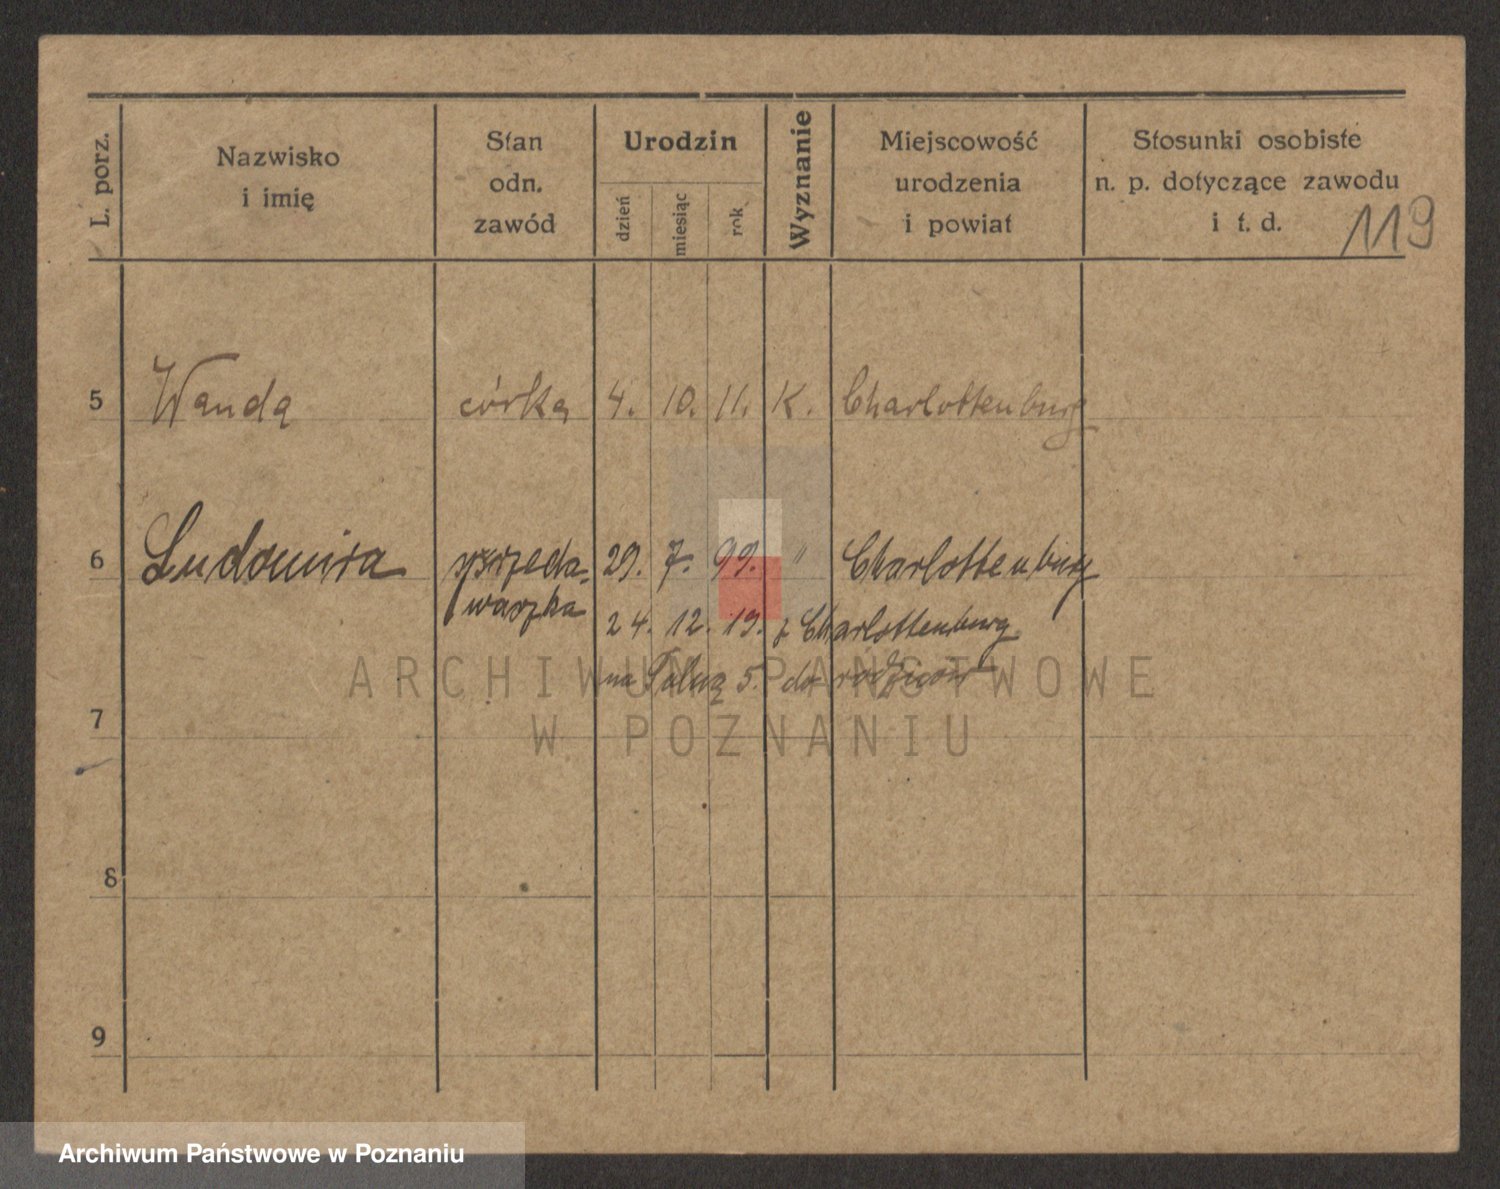 L. porz.
Nazwisko
i imię
Stan
odn.
zawód
Urodzin
dzień
miesiąc
rok
Wyznanie
Miejscowość
urodzenia
i powiat
Stosunki osobiste
n. p. dotyczące zawodu
i t. d.
119
5 Wanda córka 4. 10. 11. K. Charlottenburg
6 Ludomira sprzeda- 29. 7. 99. " Charlottenburg
waszka
24. 12. 19. z Charlottenburg
na 5. do rodziców
7
8
9
ARCHIWUM PAŃSTWOWE
W POZNANIU
Archiwum Państwowe w Poznaniu